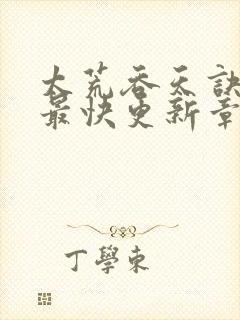 大荒吞天訣
最快更新章
丁學東